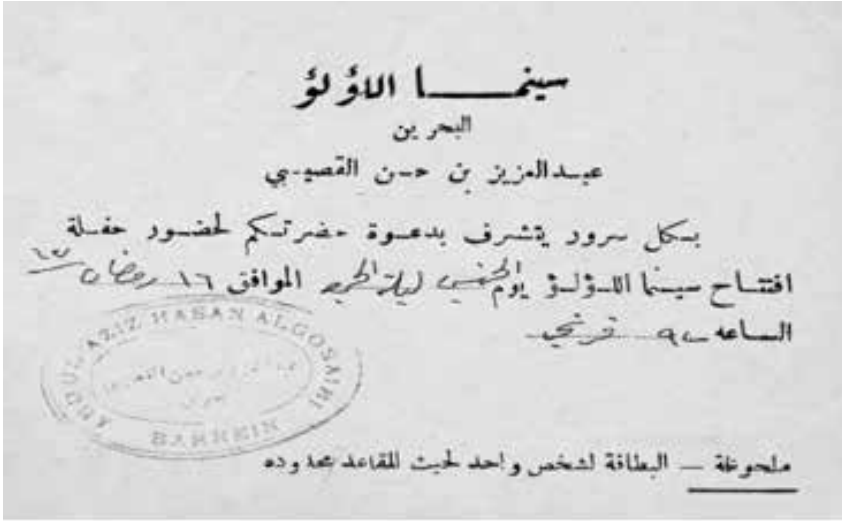 سينمـــا اللؤلؤ
البحرين
عبدالعزيز بن حسن القصيبي
بكل سرور يتشرف بدعوة حضرتكم لحضور حفلة
افتتاح سينما اللؤلؤ يوم الخميس ليلة الجمعه الموافق ١٦ رمضان
الساعه ٩ فرنجي
ABDUL AZIZ HASAN ALGOSAIBI
BAHREIN
ملحوظة — البطاقة لشخص واحد لحيث المقاعد محدوده